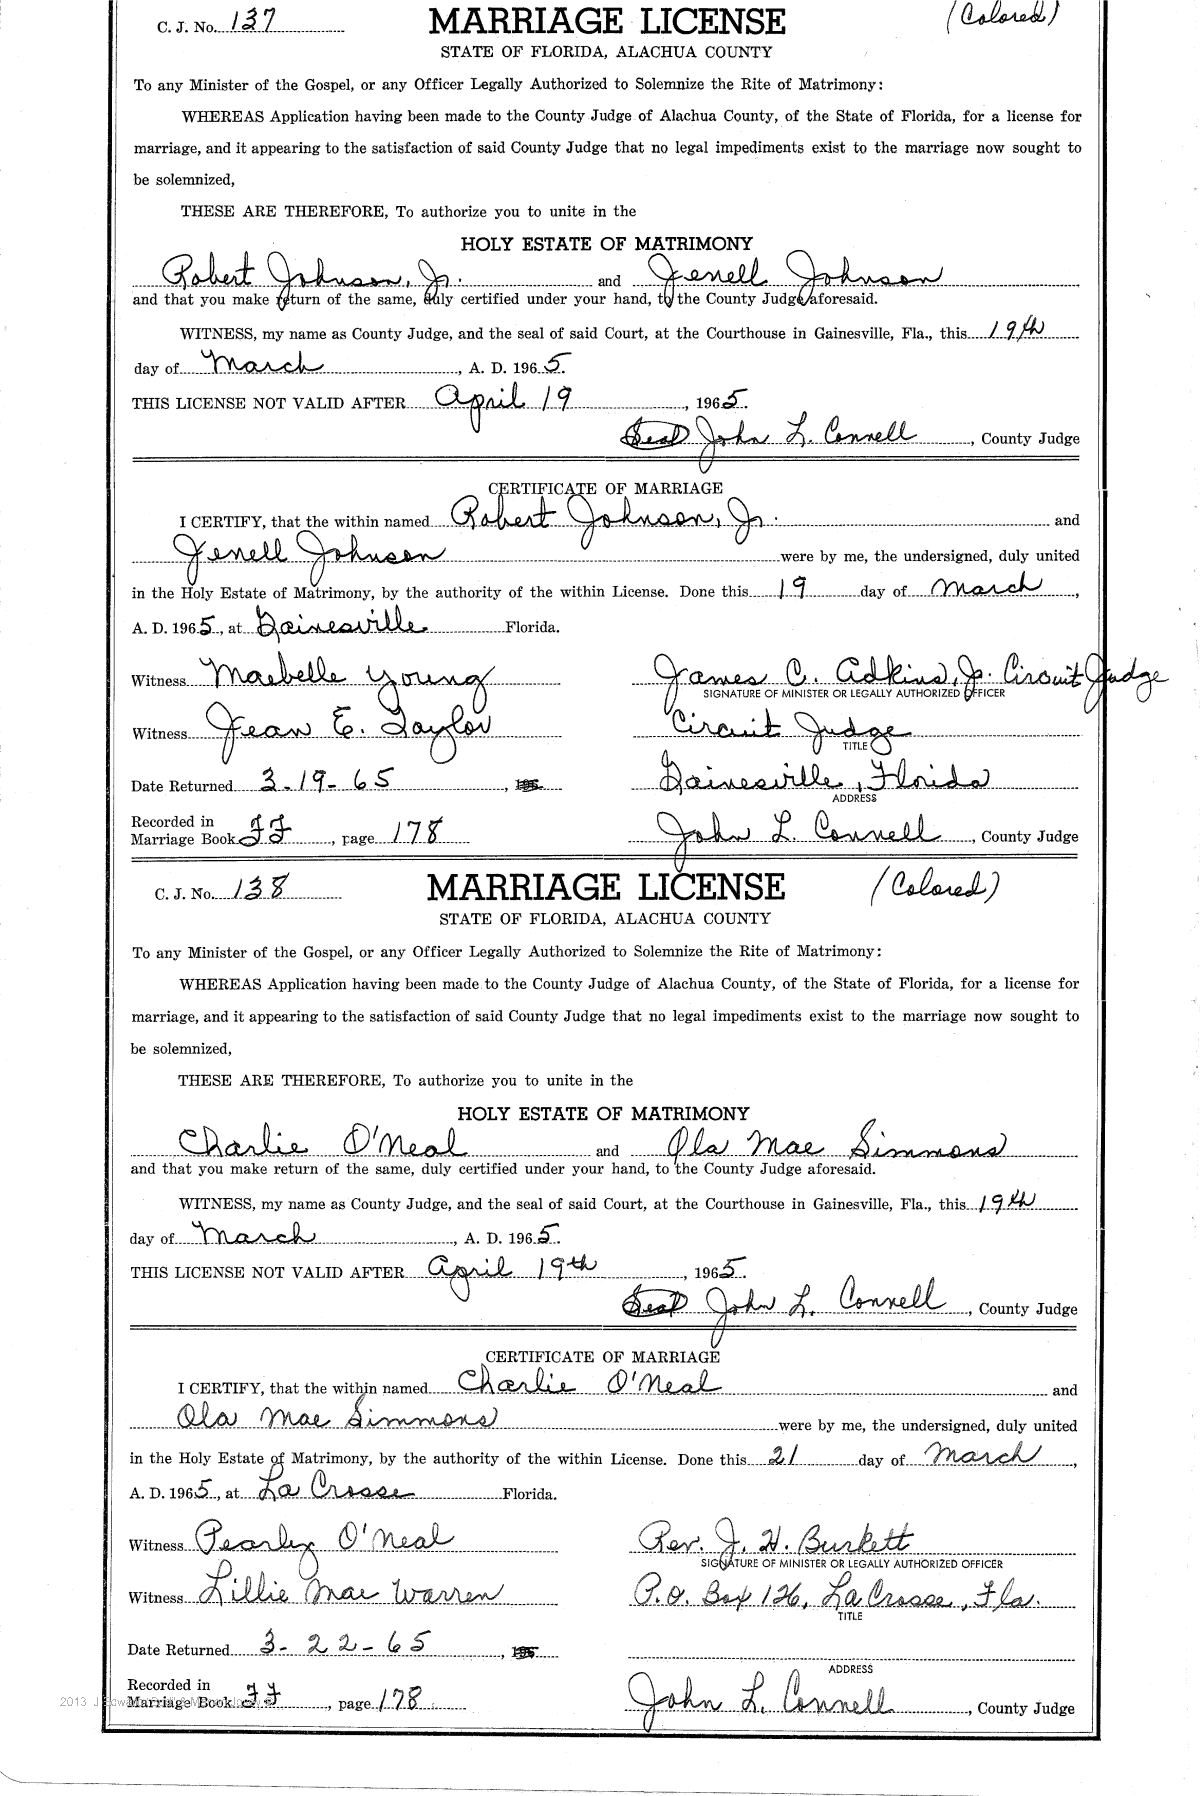 C. J. No. 137 MARRIAGE LICENSE (Colored)
STATE OF FLORIDA, ALACHUA COUNTY
To any Minister of the Gospel, or any Officer Legally Authorized to Solemnize the Rite of Matrimony:
WHEREAS Application having been made to the County Judge of Alachua County, of the State of Florida, for a license for
marriage, and it appearing to the satisfaction of said County Judge that no legal impediments exist to the marriage now sought to
be solemnized,
THESE ARE THEREFORE, To authorize you to unite in the
HOLY ESTATE OF MATRIMONY
Robert Johnson, Jr. and Jenell Johnson
and that you make return of the same, duly certified under your hand, to the County Judge aforesaid.
WITNESS, my name as County Judge, and the seal of said Court, at the Courthouse in Gainesville, Fla., this 19th
day of March, A. D. 1965.
THIS LICENSE NOT VALID AFTER April 19, 1965.
Seal John L. Connell, County Judge
CERTIFICATE OF MARRIAGE
I CERTIFY, that the within named Robert Johnson, Jr. and
Jenell Johnson were by me, the undersigned, duly united
in the Holy Estate of Matrimony, by the authority of the within License. Done this 19 day of March,
A. D. 1965, at Gainesville Florida.
Witness Maebelle Young James C. Adkins, Jr. Circuit Judge
SIGNATURE OF MINISTER OR LEGALLY AUTHORIZED OFFICER
Witness Jean E. Taylor Circuit Judge
TITLE
Date Returned 3-19-65, Gainesville, Florida
ADDRESS
Recorded in
Marriage Book FF, page 178 John L. Connell, County Judge
C. J. No. 138 MARRIAGE LICENSE (Colored)
STATE OF FLORIDA, ALACHUA COUNTY
To any Minister of the Gospel, or any Officer Legally Authorized to Solemnize the Rite of Matrimony:
WHEREAS Application having been made to the County Judge of Alachua County, of the State of Florida, for a license for
marriage, and it appearing to the satisfaction of said County Judge that no legal impediments exist to the marriage now sought to
be solemnized,
THESE ARE THEREFORE, To authorize you to unite in the
HOLY ESTATE OF MATRIMONY
Charlie O'Neal and Ola Mae Simmons
and that you make return of the same, duly certified under your hand, to the County Judge aforesaid.
WITNESS, my name as County Judge, and the seal of said Court, at the Courthouse in Gainesville, Fla., this 19th
day of March, A. D. 1965.
THIS LICENSE NOT VALID AFTER April 19th, 1965.
Seal John L. Connell, County Judge
CERTIFICATE OF MARRIAGE
I CERTIFY, that the within named Charlie O'Neal and
Ola Mae Simmons were by me, the undersigned, duly united
in the Holy Estate of Matrimony, by the authority of the within License. Done this 21 day of March,
A. D. 1965, at La Crosse Florida.
Witness Pearley O'Neal Rev. J. H. Burkett
SIGNATURE OF MINISTER OR LEGALLY AUTHORIZED OFFICER
Witness Lillie Mae Warren P.O. Box 126, La Crosse, Fla.
TITLE
Date Returned 3-22-65,
ADDRESS
Recorded in
2013 Marriage Book FF, page 178 John L. Connell, County Judge